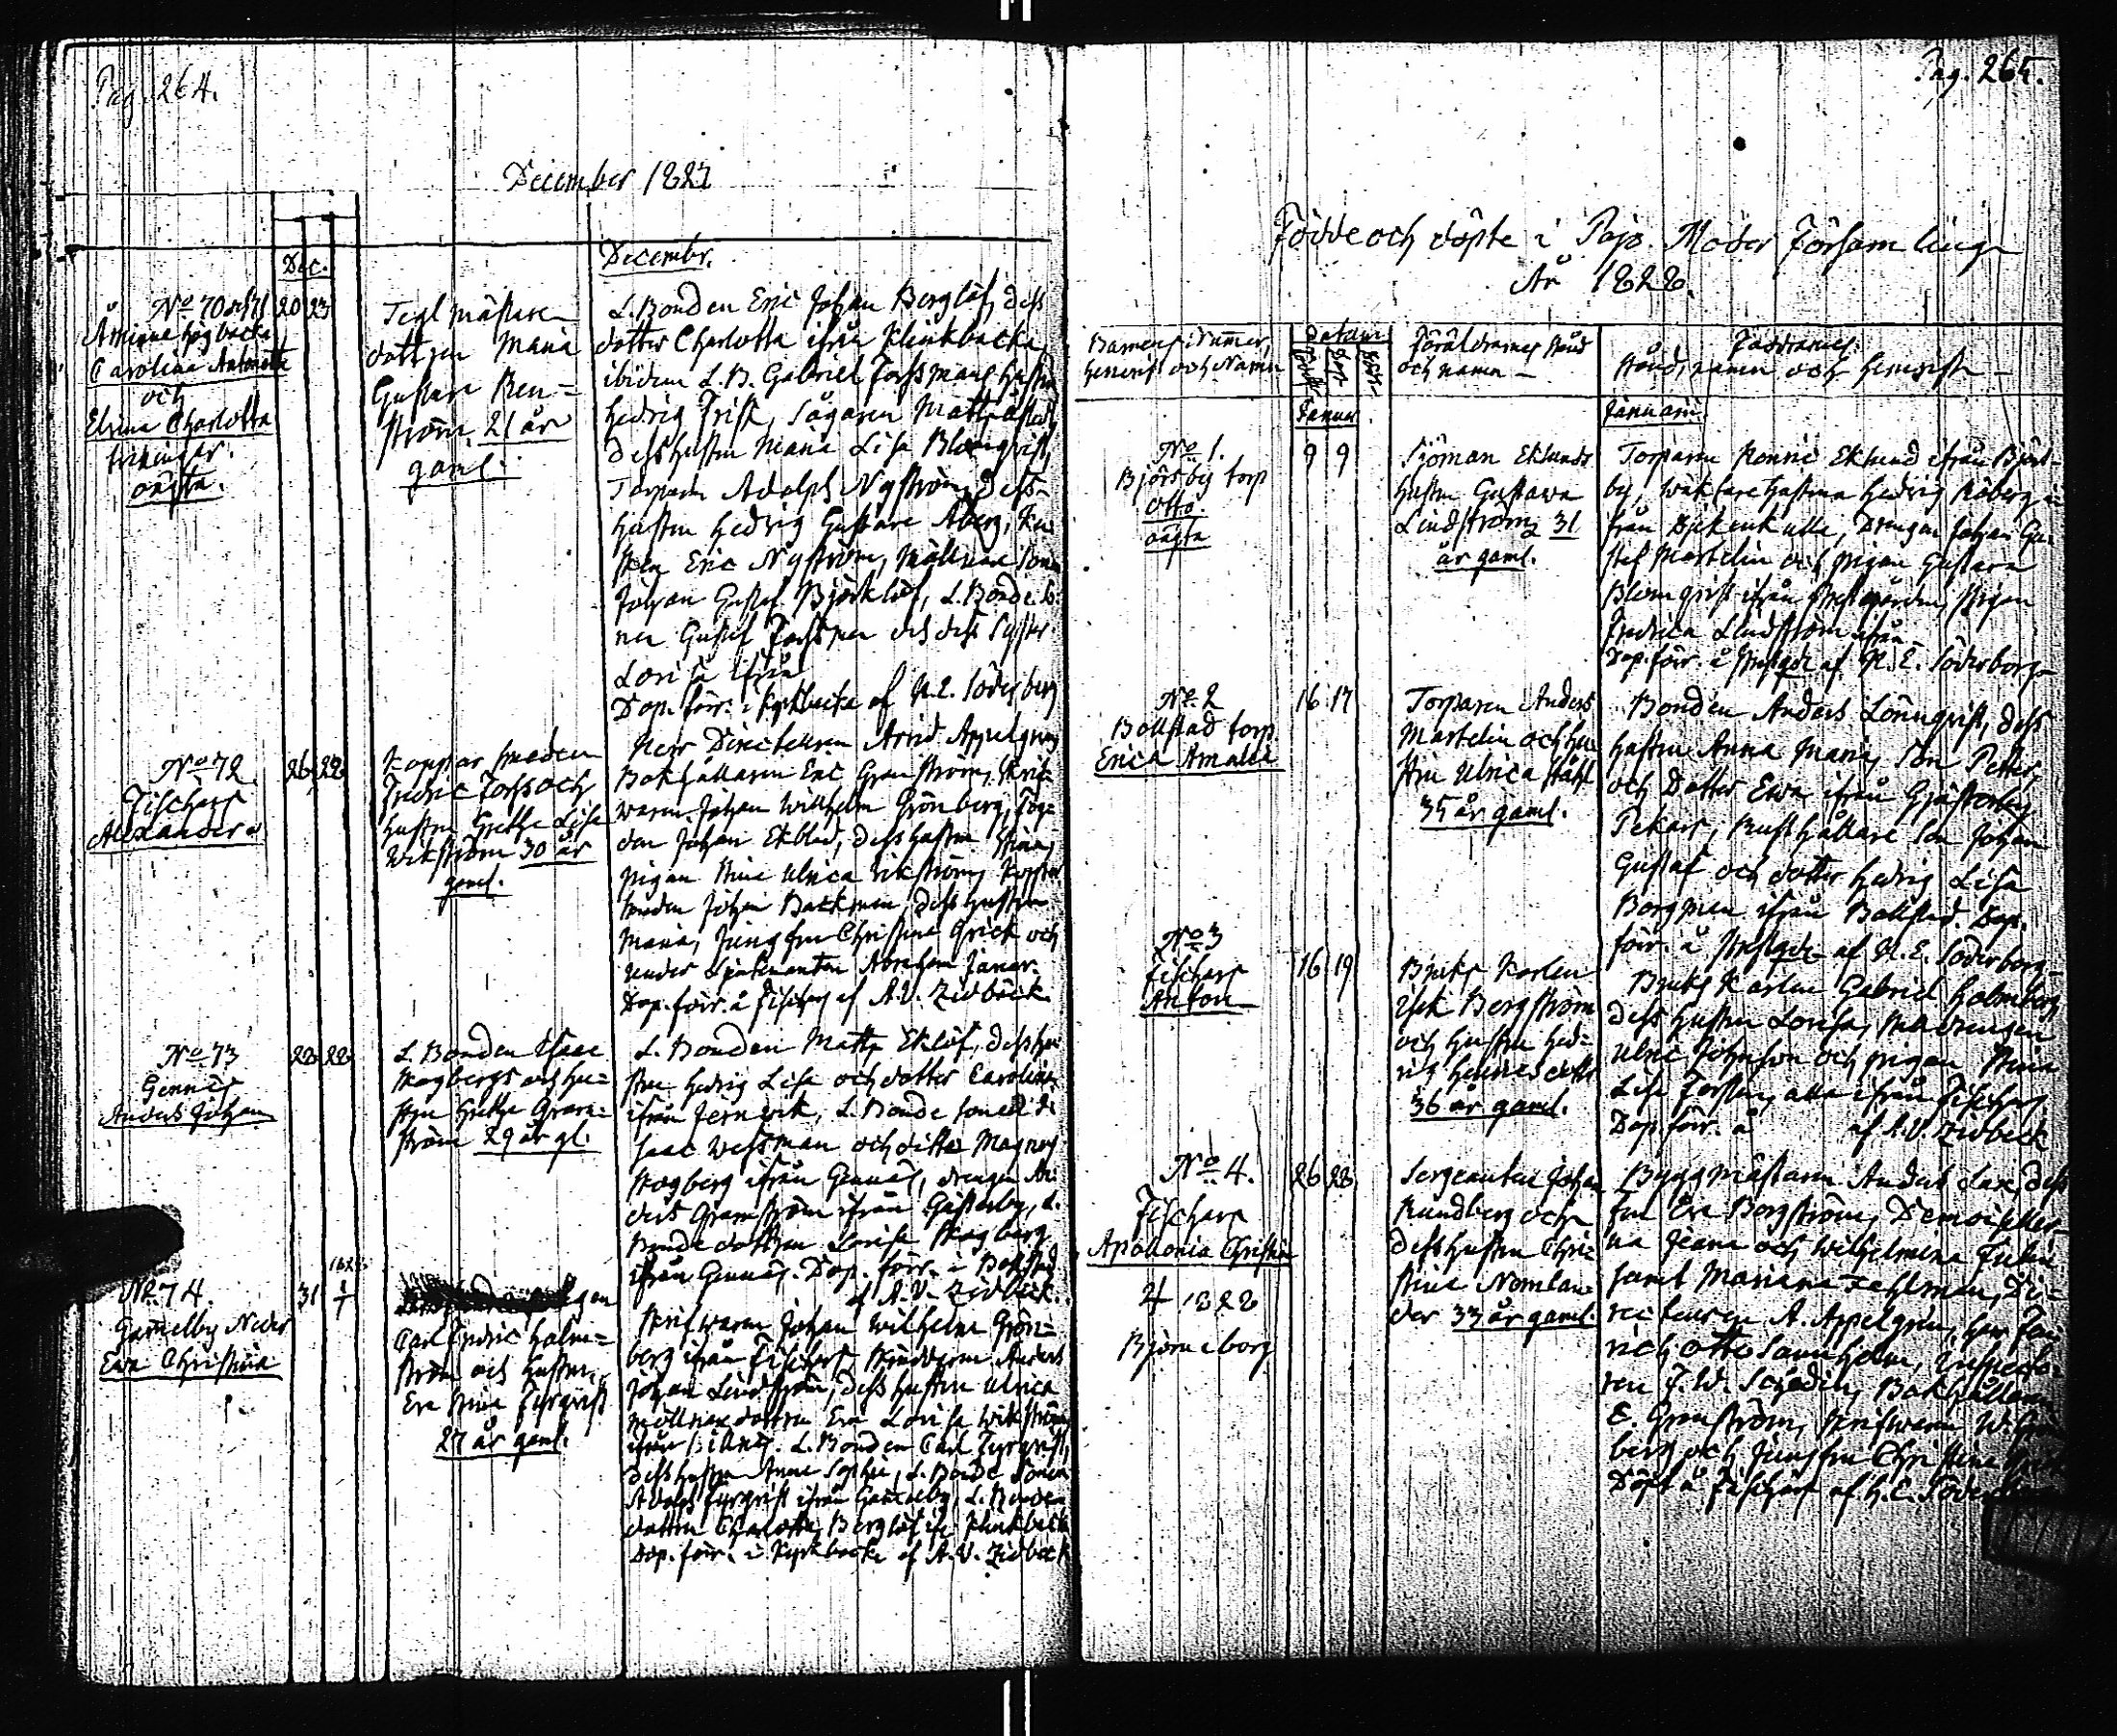 Pag. 264.
December 1827
Dec.
Decembr.
No 70 och 71 20 23
Åminne högbacka
Carolina Antonetta
och
Elvina Charlotta
trillingar.
oägta.
Tegl mästare
dottren Maria
Gustava Ren=
ström 21 år
gaml.
L. Bonden Eric Johan Berglöf, dess
dotter Charlotta ifrån Klinkbacka
ibidem L. B. Gabriel Forssmans hustru
Hedvig Frisk, Sågaren Matts
dess hustru Maria Lisa Blomqvist,
Torparn Adolph Nyström, dess
hustru Hedvig Gustava Åberg,
Eric Nyström, Möllnare Sonen
Johan Gustaf Björklöf, L. Bonde So-
nen Gustaf Forssman och dess Syster
Lovisa ifrån
Dop. förr. i Kyrkbacka af N. E. Söderborg
No 72 26 28
Fiskars
Alexander
Koppar smeden
Fredric Forss och
hustru Gretha Lisa
Wikström 30 år
gaml.
Herr Directeuren Arvid Appelgren
Bokhållaren Eric Granström, Skrif=
waren Johan Willhelm Grönberg,
Johan Ekblad, dess hustru Stina,
pigan Stina Ulrica Wikström, Koppar
smeden Johan Backman, dess hustru
Maria, Jungfru Christina Grick och
under Löjtenanten Abraham
Dop. förr. å Fiskars af A. V. Zidbäck.
No 73 28 28
Gennäs
Anders Johan
L. Bonden Isaac
Skogbergs och hu=
stru Gretha Gran=
ström 29 år gl.
L. Bonden Matts Eklöf, dess hu
stru Hedvig Lisa och dotter Carolina
ifrån Jernvik, L. Bonde sonen I
saac Wessman och ditto Magnus
Skogberg ifrån Gennäs, drengen An
ders Granström ifrån Gästerby, L.
Bonde dottren Lovisa Skogberg
ifrån Gennäs. Dop. förr. i Bollstad
af A. V. Zidbäck.
No 74. 31 1/1
Gammelby Neder
Eva Christina
Carl Fredric Holm=
ström och hustru
Eva Stina Fyrqvist
27 år gaml.
Skrifwaren Johan Wilhelm Grön=
berg ifrån Fiskars, Anders
Johan Lindström, dess hustru Ulrica
Möllnare dottren Eva Lovisa Wikström
ifrån Billnäs. L. Bonden Carl Fyrqvist,
dess hustru Anna Sophia, L. Bonde Sonen
Adolph Fyrqvist ifrån Gammelby, L. Bonde
dottren Charlotta Berglöf ifr. Klinkbacka
Dop. förr. i Kyrkbacka af A. V. Zidbäck
Pag. 265.
Födde och döpte i Pojo Moder Församling
År 1828.
Barnens Numer,
hemvist och Namn
Datum
Föräldrarnes stånd
och namn
Faddrarnes
stånd, namn och hemvist
Januar
Januari
No 1. 9 9
Björsby torp
Otto.
oägta
Sjöman Eklunds
hustru Gustava
Lindström 31
år gaml.
Torparen Konric Eklund ifrån Björs-
by, hustru Hedvig
från Drengen Johan Gu-
staf Martelin och pigan Gustava
Blomqvist ifrån Prestgården, pigan
Fredrica Lindström ifrån
Dop. förr. å Prestgdn af N. E. Söderborg
No 2 16 17
Bollstad torp
Erica Amalia
Torparen Anders
Martelin och hu
stru Ulrica Ståhl
35 år gaml.
Bonden Anders Lönnqvist, dess
hustru Anna Maria, Son Petter,
och Dotter Ewa ifrån Gjästerby
Pekars, Rusthållare Son Johan
Gustaf och dotter Hedvig Lisa
Borgman ifrån Bollstad. Dop.
förr. å Prestgdn af N. E. Söderborg
No 3 16 19
Fiskars
Anton
Bruks Karlen
Isak Bergström
och hustru Hed=
vig Henricsdotter
36 år gaml.
Bruks Karlen Gabriel Holmberg
dess hustru Lovisa,
Ulric Johnson och pigan Stina
Lisa Forsten, alla ifrån Fiskars.
Dop. förr. å af A. V. Zidbäck
No 4. 26 28
Fiskars
Apollonia Christina
4 1828
Björneborg
Sergeanten Johan
Rundberg och
dess hustru Chri=
stina Nomlan=
der 33 år gaml.
Byggmästaren Anders Lax, dess
Fru Eva Bergström, Demoiseller
na Jeana och Wilhelmina Julin
samt Mariana Fahlman, Di=
recteuren A. Appelgren, Herr
Otto Inspecto=
ren J. W. Bokhållaren
E. Granström, Skrifwaren W. Grön
berg och Jungfru Christina Grick
Döpt å Fiskars af N. E. Söderborg